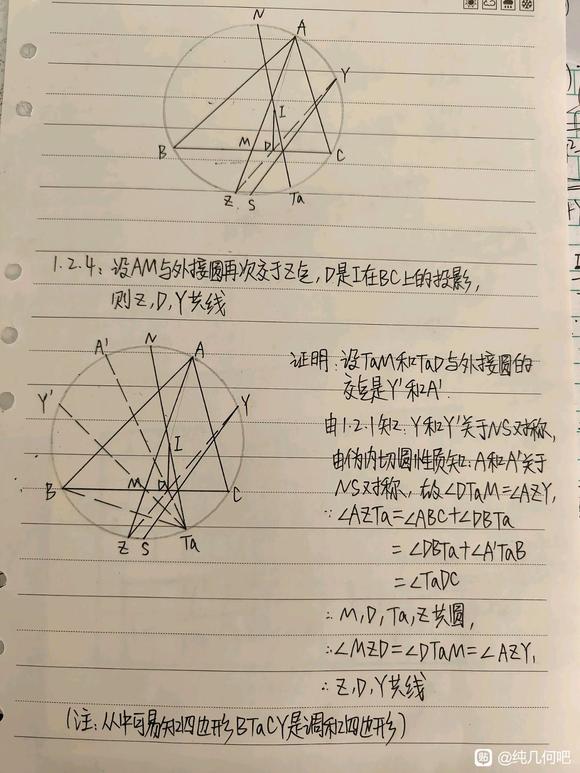 N
A
Y
I
B
M
D
C
Z
S
Ta
1.2.4: 设AM与外接圆再次交于Z点, D是I在BC上的投影,
则Z, D, Y共线
A'
N
A
Y'
Y
I
B
M
D
C
Z
S
Ta
证明: 设TaM和TaD与外接圆的
交点是Y'和A'.
由1.2.1知: Y和Y'关于NS对称,
由伪内切圆性质知: A和A'关于
NS对称, 故∠DTaM=∠AZY,
∵∠AZTa=∠ABC+∠DBTa
=∠DBTa+∠A'TaB
=∠TaDC
∴M, D, Ta, Z共圆,
∴∠MZD=∠DTaM=∠AZY,
∴Z, D, Y共线
(注: 从中可易知四边形BTaCY是调和四边形)
贴 @纯几何吧